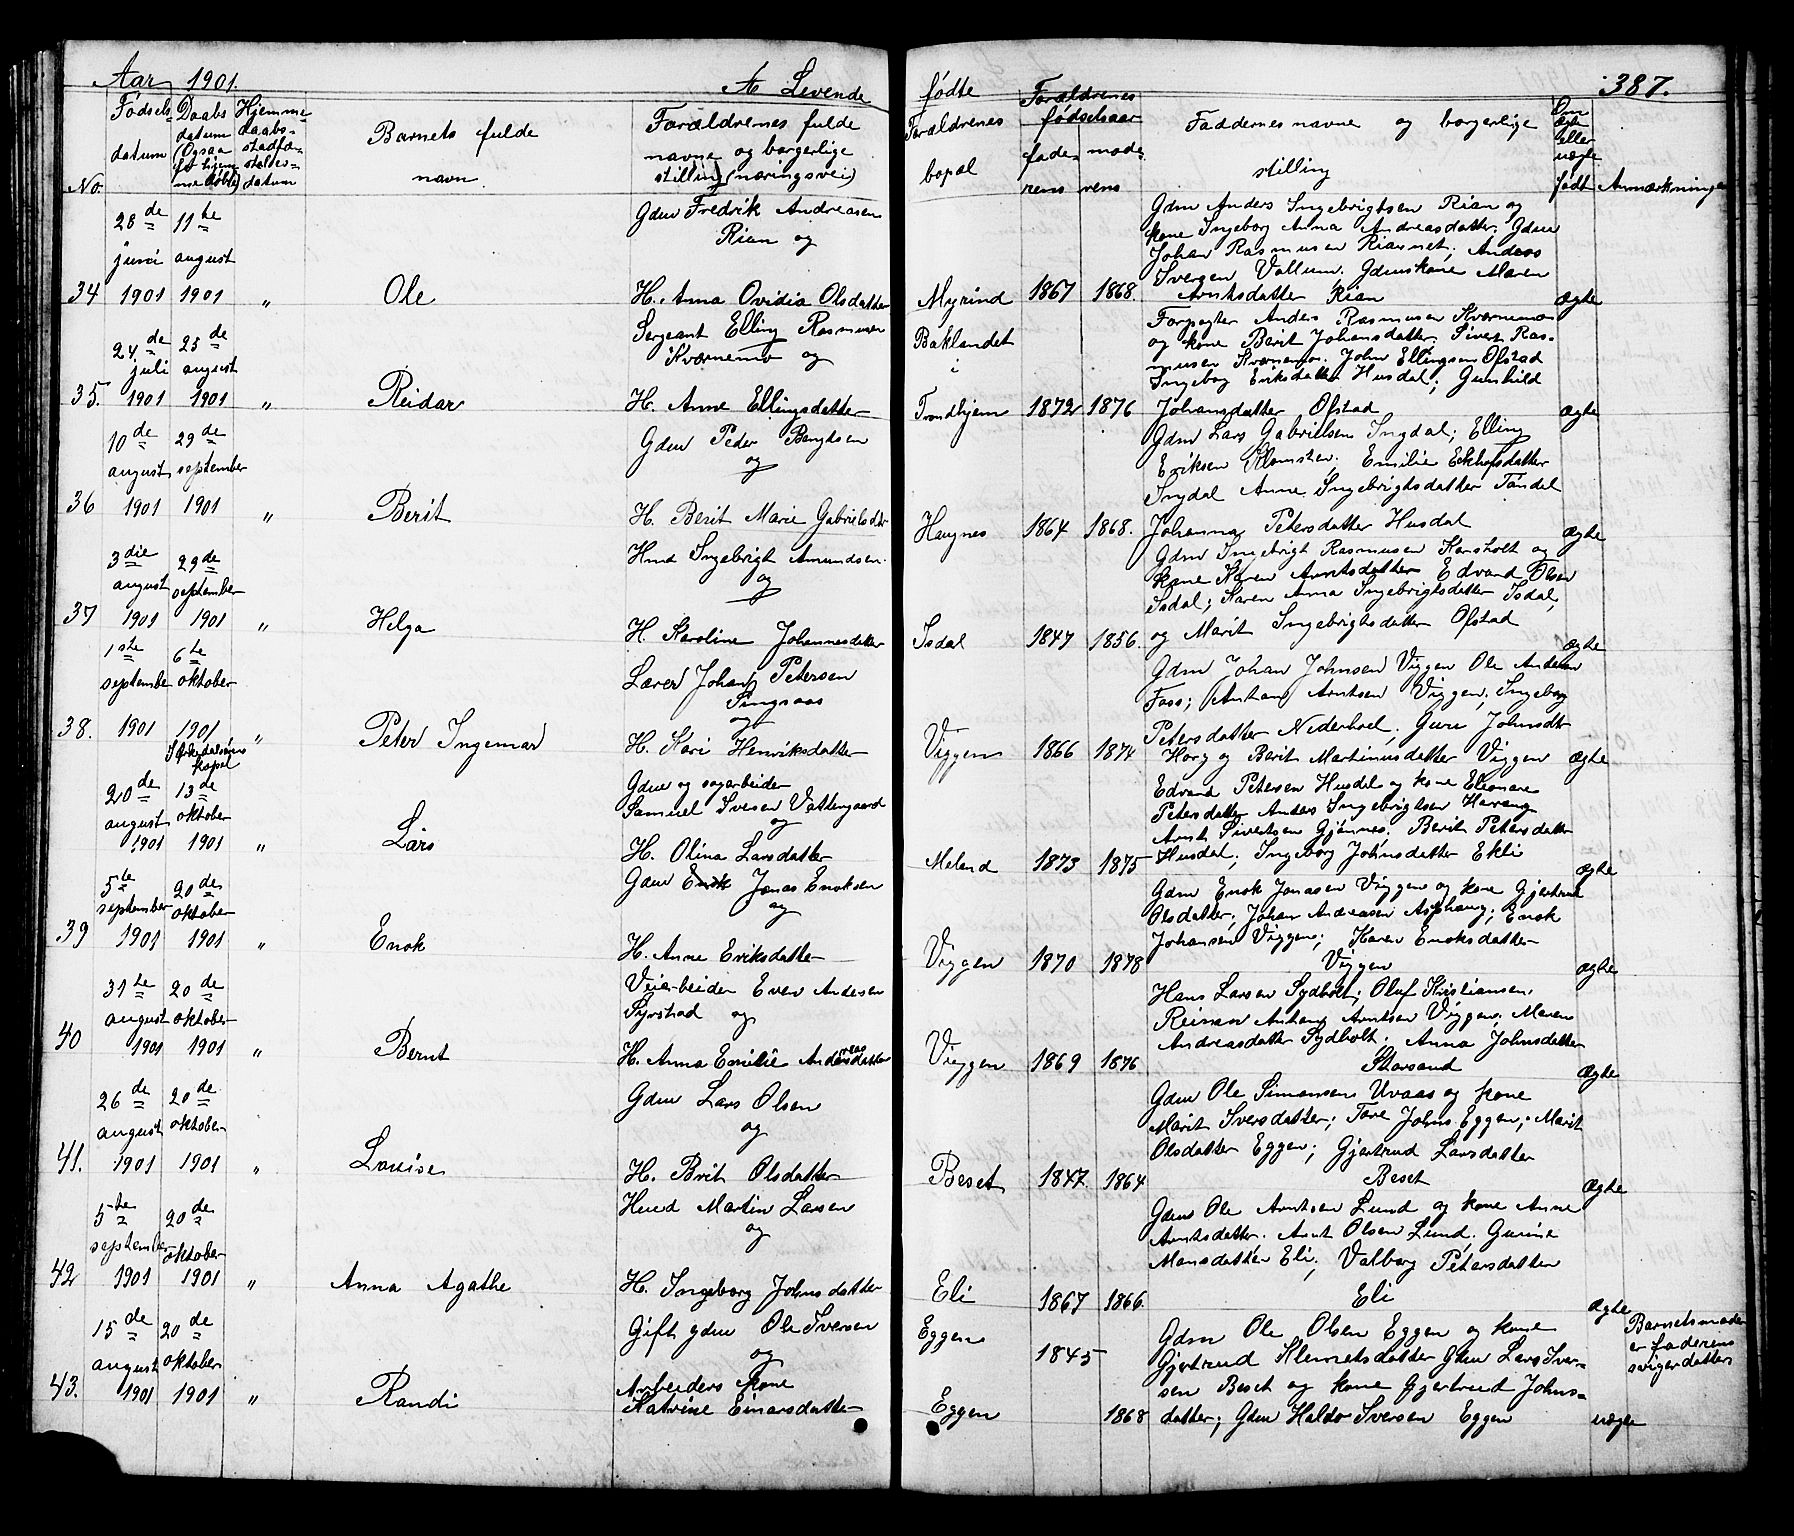 Aar 1901. A. Levende
No.
Fødsels- datum
Daabs datum (Ogsaa for hjemmedøbte)
Hjemmedaabs- stadfæstelses- datum
Barnets fulde navn
Forældrenes fulde navne og borgerlige stilling (næringsvei)
34
28de juni 1901
11te august 1901
"
Ole
Gdm Fredrik Andreasen
Rian og
H. Anna Ovidia Olsdatter
35.
24.de juli 1901
25de august 1901
"
Reidar
Sergeant Elling Rasmusen
Kværnemo og
H. Anne Ellingsdatter
36
10de august 1901
29de september 1901
"
Berit
Gdm Peder Bengtsen
og
H. Berit Marie Gabrielsdtr
37
3die august 1901
29de september 1901
"
Helga
Hmd Ingebrigt Amundsen
og
H. Karoline Johannesdatter
38.
1ste september 1901
6te oktober 1901
"
Peter Ingemar
Lærer Johan Petersen
Singsaas
og
H. Kari Henriksdatter
20de august 1901
kapel
13de oktober 1901
"
Lars
Gdm og sagarbeider
Samuel Iversen Vattengaard
og
H. Olina Larsdatter
39
5te september 1901
20de oktober 1901
"
Enok
Gdm Jonas Enoksen
og
H. Anne Eriksdatter
40
31te august 1901
20de oktober 1901
"
Bernt
Veiarbeider Even Andersen
Syrstad og
H. Anna Emilie Andreasdatter
41.
26de august 1901
20de oktober 1901
"
Louise
Gdm Lars Olsen
og
H. Brit Olsdatter
42
5te september 1901
20de oktober 1901
"
Anna Agathe
Hmd Martin Larsen
og
H. Ingeborg Johnsdatter
43.
15de august 1901
20de oktober 1901
"
Randi
Gift gdm Ole Iversen
og
Arbeiders kone
Katrine Einarsdatter
fødte 387.
Forældrenes bopæl
Forældrenes fødselsaar
faderens moderens
Faddernes navne og borgerlige stilling
Om ægte eller uægte født
Anmærkninger
Gdm Anders Ingebrigtsen Rian og
kone Ingeborg Anna Andreasdatter. Gdm
Johan Rasmusen Riasnet; Anders
Iversen Vollum. Gdmskone Maren
Myrind 1867 1868. Arntsdatter Rian ægte
Baklandet
i
Trondhjem 1872 1876
Forpagter Anders Rasmusen Kværnemo
og kone Berit Johansdatter. Siver Ras-
musen Kværnemo. John Ellingsen Ofstad
Ingeborg Eriksdatter Husdal; Gunhild
Johansdatter Ofstad ægte
Gdm Lars Gabrielsen Ingdal; Elling
Eriksen Emilie
Ingdal Anne Ingebrigtsdatter Tøndel
Haugnes 1864 1868. Johanna Petersdatter Husdal ægte
Gdm Ingebrigt Rasmusen Korsholt og
kone Karen Arntsdatter Edvard Olsen
Isdal; Karen Anna Ingebrigtsdatter Isdal,
Isdal 1847 1856. og Marit Ingebrigtsdatter Ofstad ægte
Gdm Johan Johnsen Viggen Ole Andersen
Foss; Anthon Arntsen Viggen; Ingeborg
Petersdatter Nederhoel; Guru Johnsdtr
Viggen 1866 1874 Horg og Berit Martinusdatter Viggen ægte
Edvard Petersen Husdal og kone Eleonore
Petersdatter Anders Ingebrigtsen Haraug
Arnt Sivertsen Gjønnes. Berit Petersdatter
Meland 1873 1875 Husdal; Ingeborg Johnsdatter Ekli ægte
Gdm Enok Jonasen Viggen og kone Gjertrud
Olsdatter; Johan Andreasen Asphaug; Enok
Johansen Viggen; Karen Enoksdatter
Viggen 1870 1878 Viggen ægte
Hans Larsen Sydholt; Oluf Kristiansen,
Reinan Anthon Arntsen Viggen; Maren
Andreasdatter Sydholt. Anna Johnsdatter
Viggen 1869 1876 Storsand ægte
Gdm Ole Simonsen Uvaas og kone
Marit Iversdatter; Tore Johns Eggen; Marit
Olsdatter Eggen; Gjertrud Larsdatter
Beset 1847 1864 Beset ægte
Gdm Ole Arntsen Lund og kone Anne
Arntsdatter. Arnt Olsen Lund. Gurine
Monsdatter Eli; Valborg Petersdatter
Eli 1867 1866. Eli ægte
Eggen 1845
Gdm Ole Olsen Eggen og kone
Gjertrud Klemetsdatter Gdm Lars Iver-
sen Beset og kone Gjertrud Johns-
Eggen 1868 datter; Gdm Haldo Iversen Eggen uægte
Barnets moder
er faderens
svigerdatter